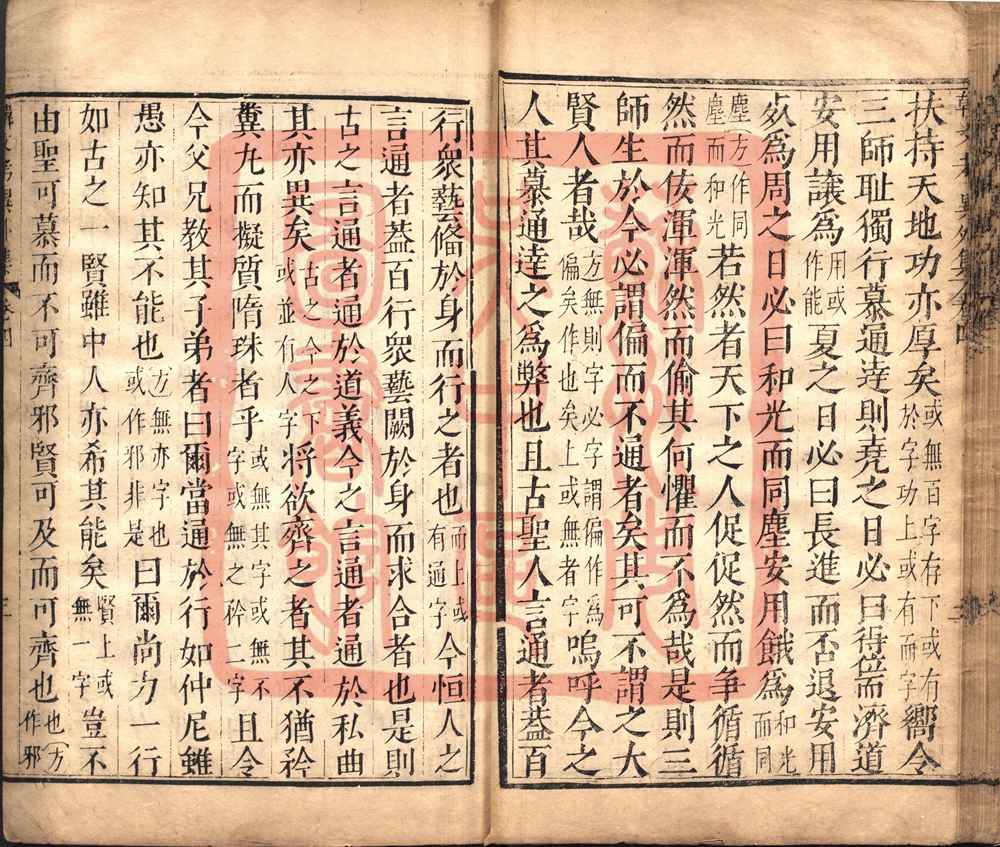 扶持天地功亦厚矣或無百字存下或有於字功上或有而字嚮令
三師耻獨行慕通達則堯之日必曰得位而濟道
安用讓爲用或作能夏之日必曰長進而否退安用
死爲周之日必曰和光而同塵安用餓爲和光而同
塵方作同塵而和光若然者天下之人促促然而爭循循
然而佞渾渾然而偷其何懼而不爲哉是則三
師生於今必謂偏而不通者矣其可不謂之大
賢人者哉方無則字必字謂偏作爲偏矣作也矣上或無者字嗚呼今之
人其慕通達之爲弊也且古聖人言通者葢百
行衆藝備於身而行之者也而上或有通字今恒人之
言通者葢百行衆藝闕於身而求合者也是則
古之言通者通於道義今之言通者通於私曲
其亦異矣古之今之下或並有人字將欲齊之者其不猶矜
糞丸而擬質隋珠者乎或無其字或無不字或無之矜二字且令
今父兄教其子弟者曰爾當通於行如仲尼雖
愚亦知其不能也方無亦字也或作邪非是曰爾尚力一行
如古之一賢雖中人亦希其能矣賢上或無一字豈不
由聖可慕而不可齊邪賢可及而可齊也也方作邪